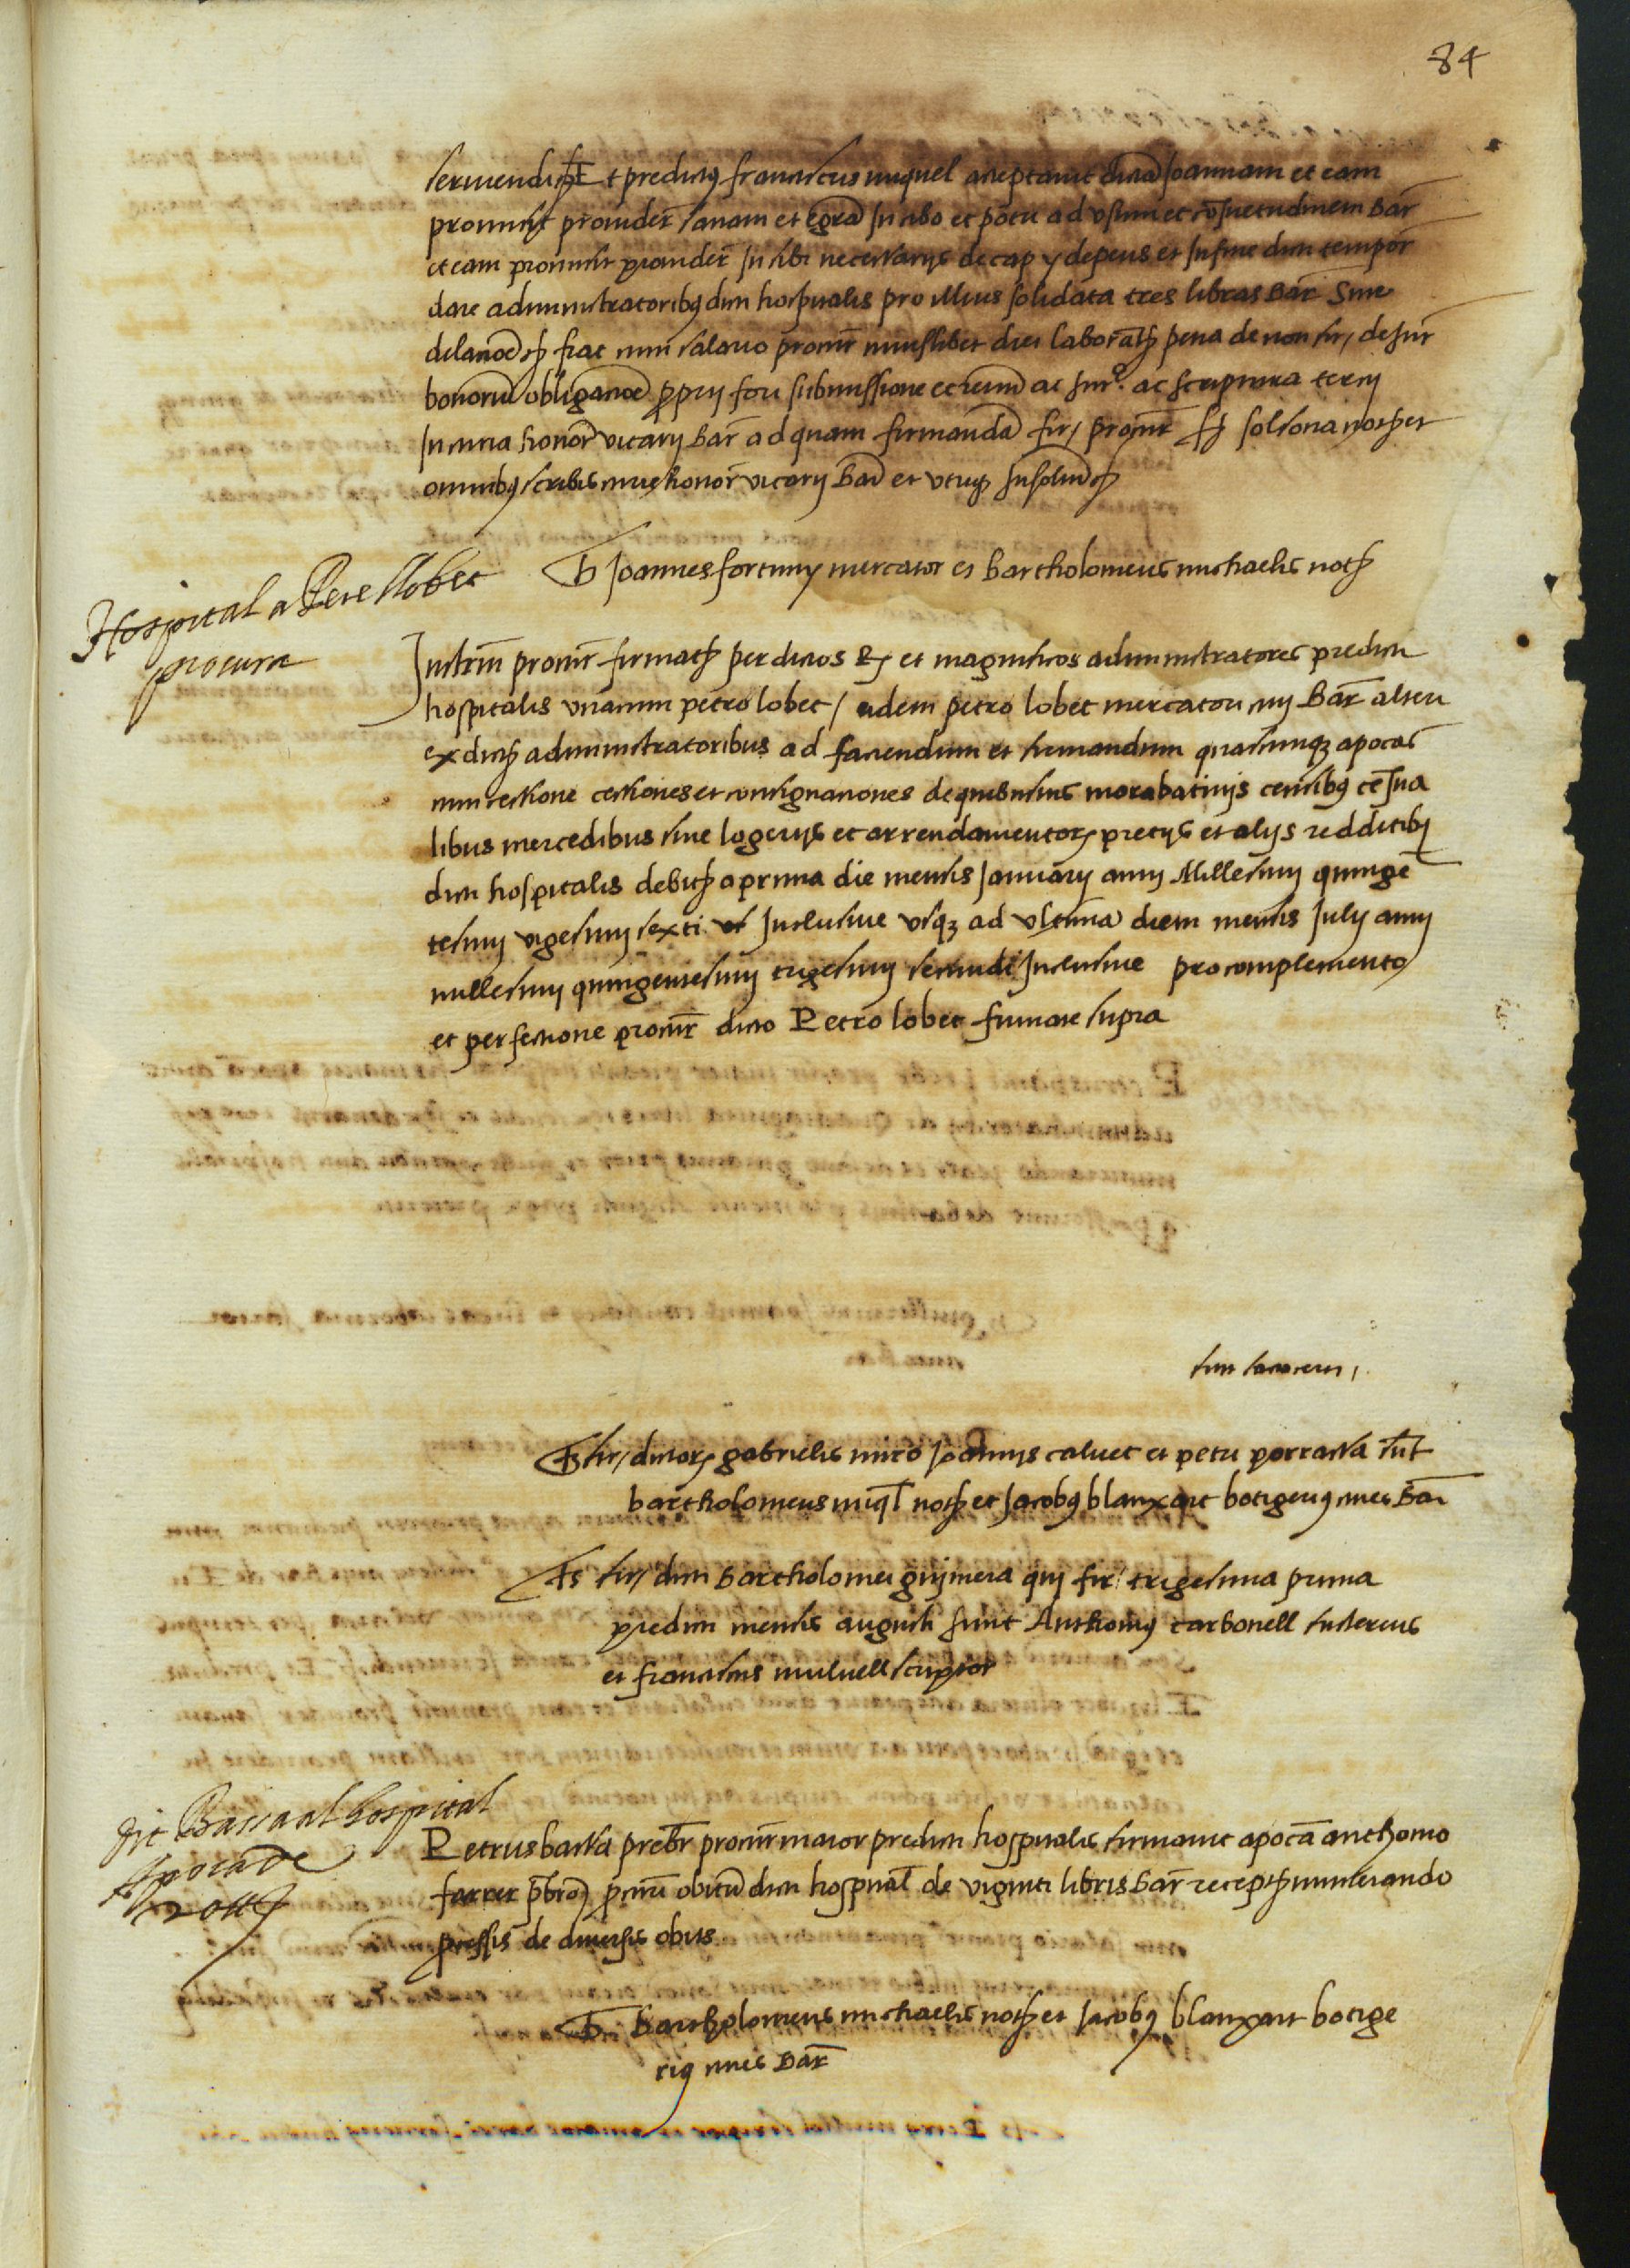 84
serviendi etc Et predictus franciscus miquel acceptavit dictã Joannam et eam
promisit provider̃ sanam et egrã In cibo et potu ad usum et cõsuetudinem Bar̃
et eam promisit provider̃ In sibi necessarijs de cap y de peus et In fine dicti tempor̃
dare administratoribus dicti hospitalis pro illius solidata tres libras Bar̃ Sine
dilatione etc fiat cum salario procur̃ cuiuslibet diei
bonorũ obligatione proprij fori submissione et ac scriptura tercij
In curia honor̃ vicarij Bar̃ ad quam firmandã fir/ procur̃
omnibus scribis curie honor̃ vicarij Bar̃ et utriusque Insolidũ etc
Ts Joannes fortuny mercator et bartholomeus michaelis not
Hospital a Pere llobet
procura
Instrm̃ procur̃ firmat per dictos R et magnificos administratores predicti
hospitalis unacum petro lobet / eidem petro lobet mercatori civi Bar̃ alteri
ex dictis administratoribus ad faciendum et firmandum quascunq apocas
cum cessione cessiones et consignationes de quibusvis morabatinijs censibus cẽsua
libus mercedibus sive logerijs et arrendamentor precijs et alijs redditibus
dicti hospitalis debitis a prima die mensis Januarij anni Millesimi quingẽ
tesimi vigesimi sexti Inclusive usq ad ultimã diem mensis Julij anni
millesimi quingentesimi trigesimi secundi Inclusive pro complemento
et perfectione procur̃ dicto Petro lobet firmate supra
Ts fir/ dictor gabrielis miro Joannis calvet et petri porrassa sũt
bartholomeus miql not et Jacobus blanxart botigerius cives Bar̃
Ts fir/ dicti bartholomei guimera qui fir/ trigesima prima
predicti mensis augusti sunt Anthonius carbonell
et franciscus mulnell scriptor
dit Bassa al hospital
Apoca de
20 ll
Petrus bassa prebr̃ procur̃ maior predicti hospitalis firmavit apocã anthonio
farrer prebro procur̃ obituũ dicti hospital̃ de viginti libris bar̃ recept numerando
processis de diversis obits
Ts Bartholomeus michaelis not et Jacobus blanxart botige
rius cives Bar̃